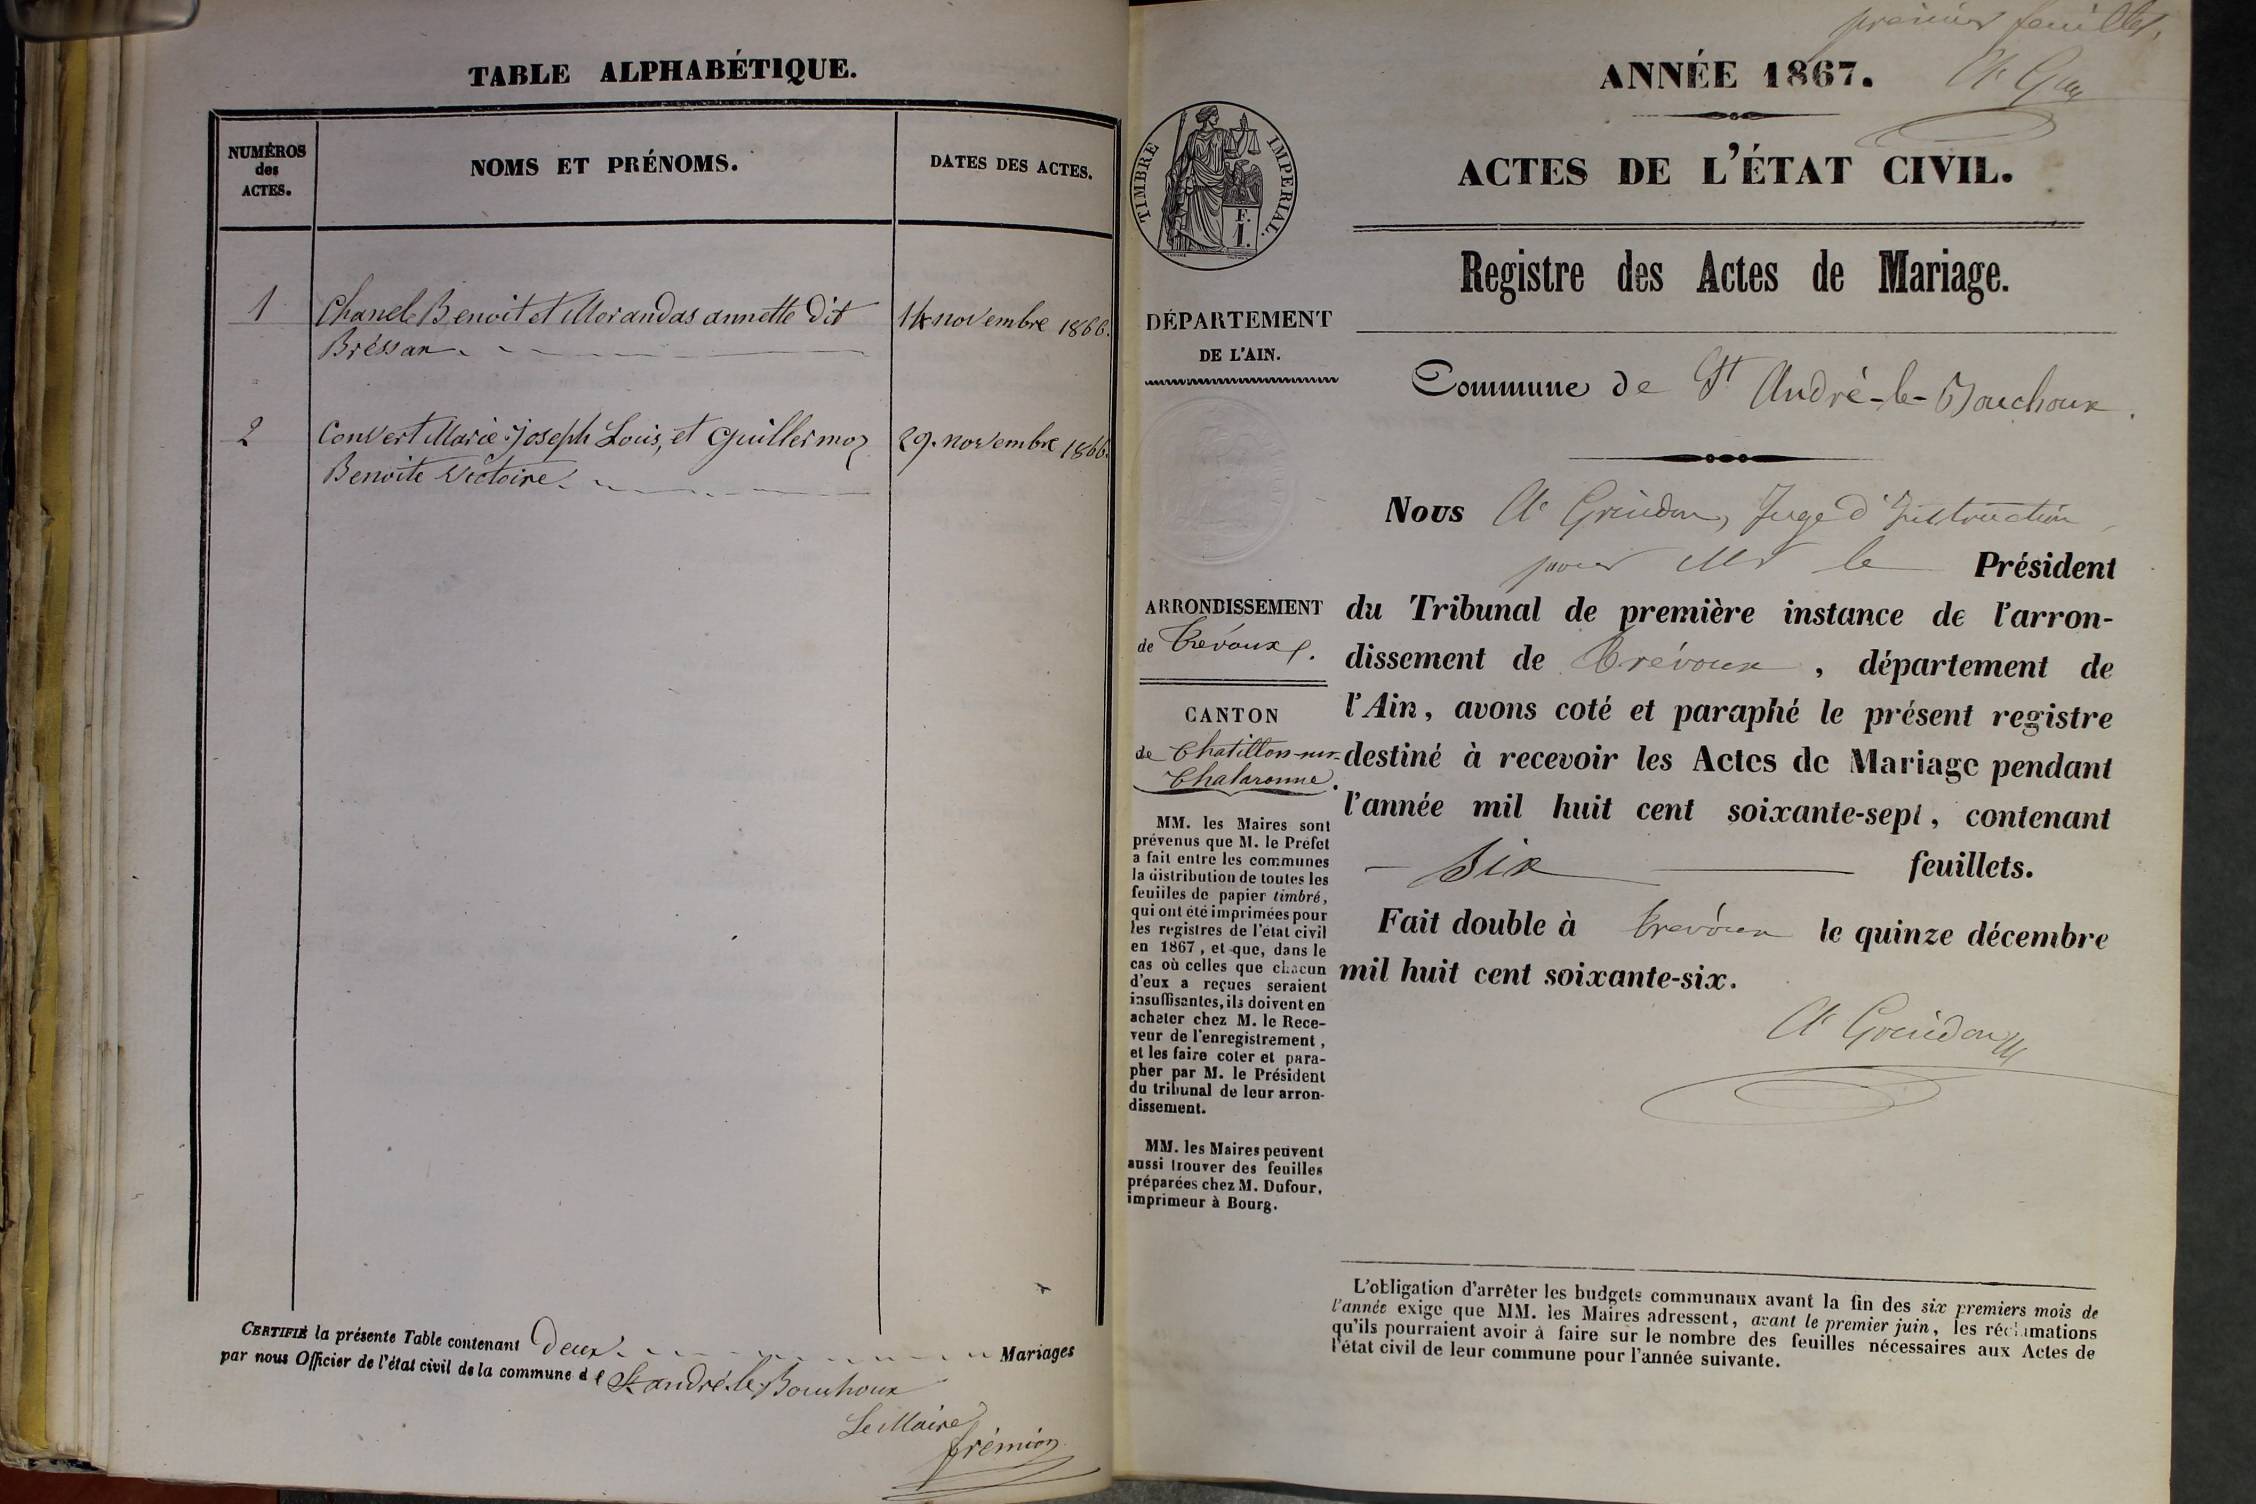 TABLE ALPHABÉTIQUE.
NUMÉROS
des
ACTES.
NOMS ET PRÉNOMS.
DATES DES ACTES.
1
Chanel Benoit et Morandas annette dit
14 novembre 1866.
Bréssan
2
Convert Marie Joseph Louis, et Guillermoz
29. novembre 1866.
Benoite Victoire
CERTIFIÉ la présente Table contenant Deux Mariages
par nous Officier de l'état civil de la commune de St andré le Bouchoux
Le Maire
Frémion
premier feuillet,
ANNÉE 1867.
ACTES DE L'ÉTAT CIVIL.
Registre des Actes de Mariage.
TIMBRE IMPERIAL.
F.
1.
DÉPARTEMENT
DE L'AIN.
ARRONDISSEMENT
de Trévoux.
CANTON
de Chatillon-sur-
Chalaronne.
MM. les Maires sont
prévenus que M. le Préfet
a fait entre les communes
la distribution de toutes les
feuilles de papier timbré,
qui ont été imprimées pour
les registres de l'état civil
en 1867, et que, dans le
cas où celles que chacun
d'eux a reçues seraient
insuffisantes, ils doivent en
acheter chez M. le Rece-
veur de l'enregistrement,
et les faire coter et para-
pher par M. le Président
du tribunal de leur arron-
dissement.
MM. les Maires peuvent
aussi trouver des feuilles
préparées chez M. Dufour,
imprimeur à Bourg.
Commune de St André-le-Bouchoux.
Nous Greudon, Juge d'Instruction
pour Mr le Président
du Tribunal de première instance de l'arron-
dissement de Trévoux, département de
l'Ain, avons coté et paraphé le présent registre
destiné à recevoir les Actes de Mariage pendant
l'année mil huit cent soixante-sept, contenant
six feuillets.
Fait double à Trévoux le quinze décembre
mil huit cent soixante-six.
Greudon
L'obligation d'arrêter les budgets communaux avant la fin des six premiers mois de
l'année exige que MM. les Maires adressent, avant le premier juin, les réclamations
qu'ils pourraient avoir à faire sur le nombre des feuilles nécessaires aux Actes de
l'état civil de leur commune pour l'année suivante.